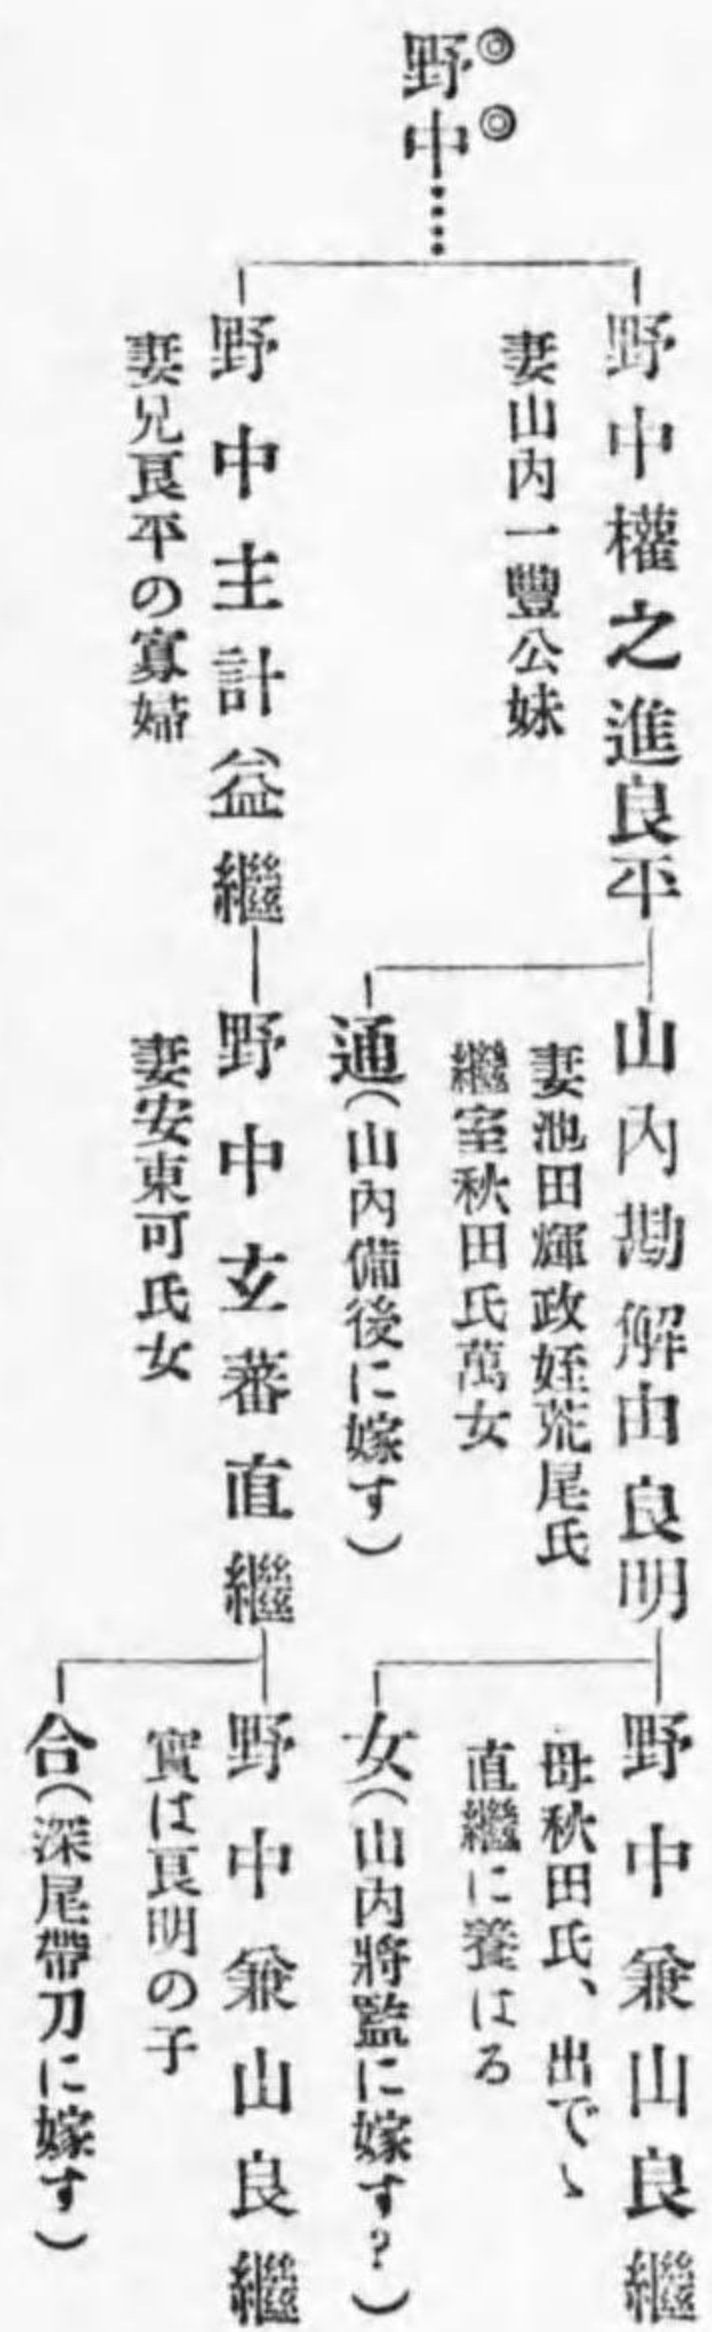 野中
野中權之進良平
妻山内一豐公妹
山内勘解由良明
妻池田輝政姪荒尾氏
繼室秋田氏萬女
野中兼山良繼
母秋田氏、出でゝ
直繼に養はる
女(山内將監に嫁す?)
通(山内備後に嫁す)
野中主計益繼
妻兄良平の寡婦
野中玄蕃直繼
妻安東可氏女
野中兼山良繼
實は良明の子
合(深尾帶刀に嫁す)